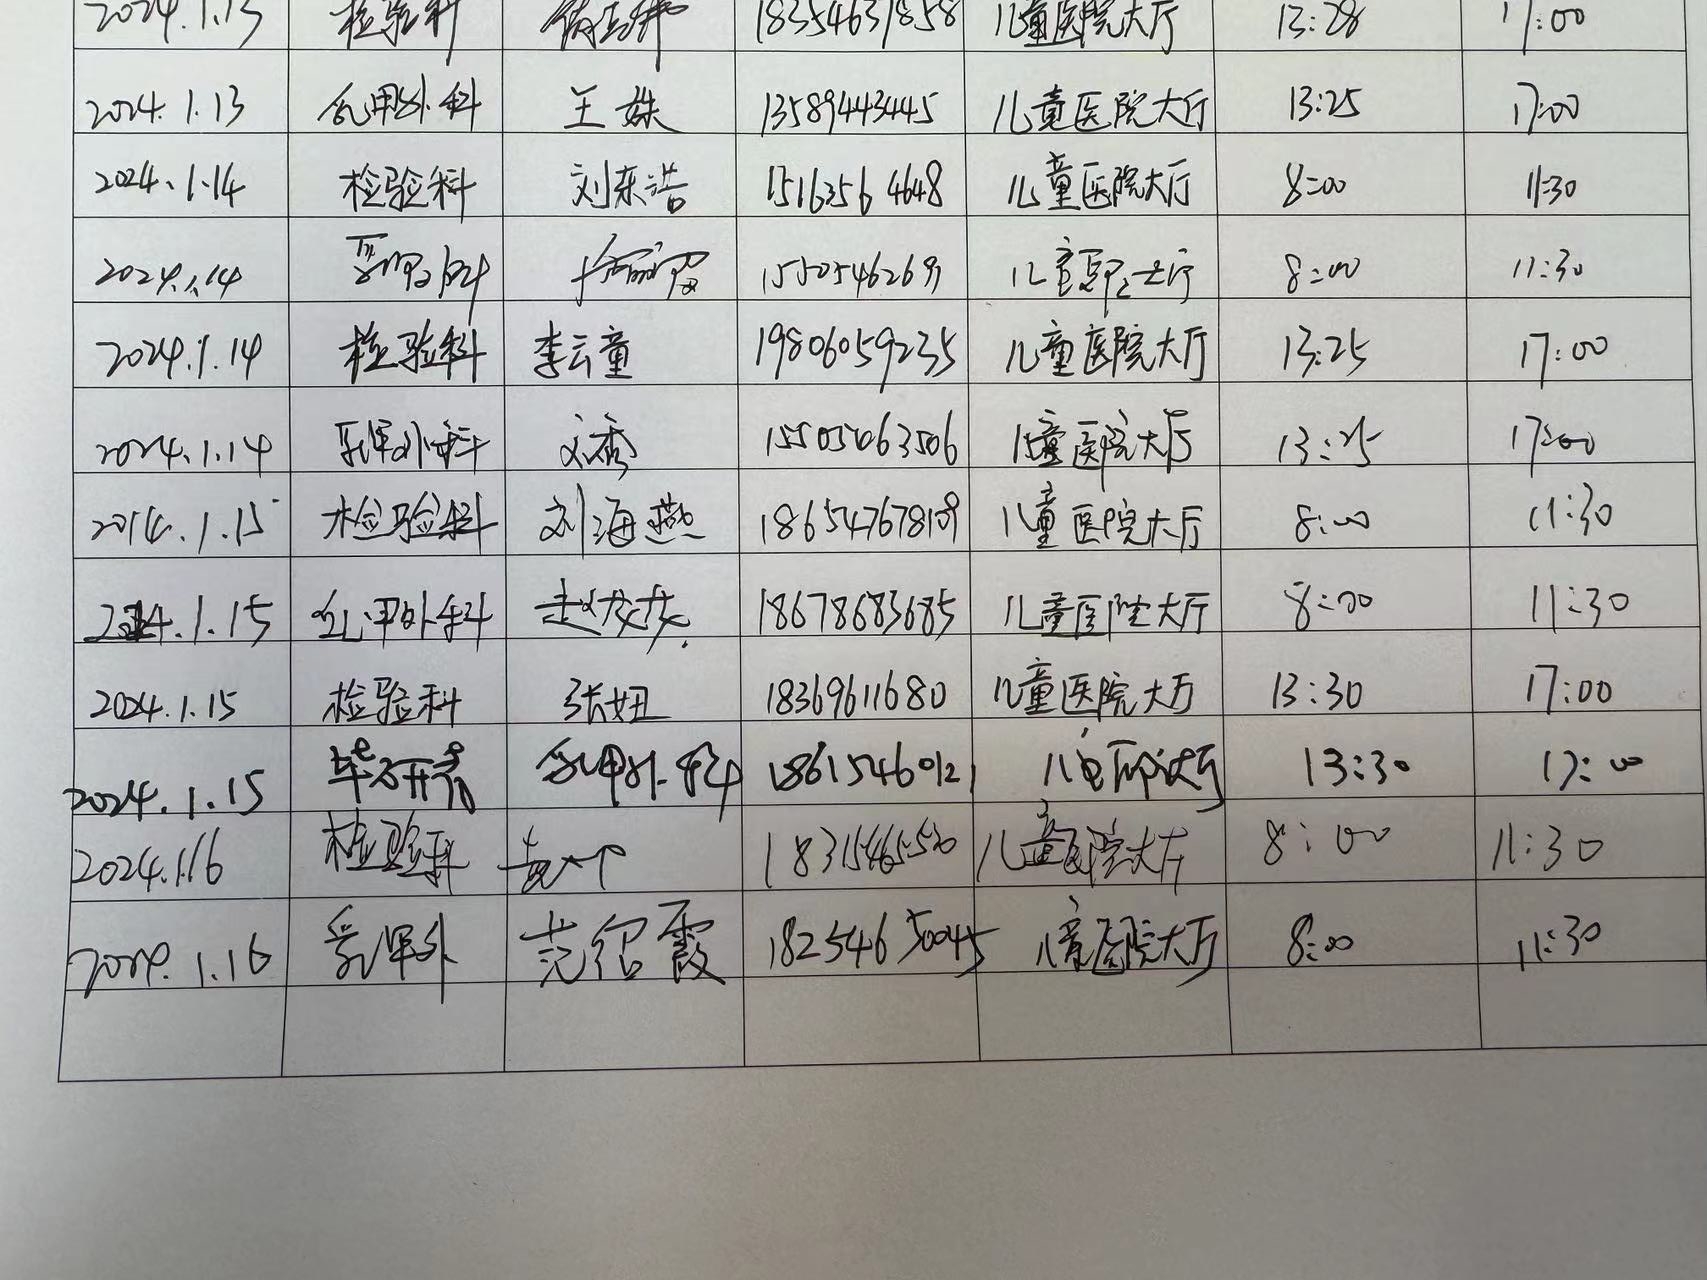 2024.1.13 检验科 18354631858 儿童医院大厅 13:28 17:00
2024.1.13 乳甲外科 王姝 13589443445 儿童医院大厅 13:25 17:00
2024.1.14 检验科 刘东浩 15163564648 儿童医院大厅 8:00 11:30
2024.1.14 儿童医院大厅 8:00 11:30
2024.1.14 检验科 李云童 19806059235 儿童医院大厅 13:25 17:00
2024.1.14 乳甲外科 刘秀 15505463506 儿童医院大厅 13:25 17:00
2014.1.15 检验科 刘海燕 儿童医院大厅 8:00 11:30
2024.1.15 乳甲外科 赵姣姣 18678683685 儿童医院大厅 8:00 11:30
2024.1.15 检验科 张妞 18369611680 儿童医院大厅 13:30 17:00
2024.1.15 乳甲外科 18615460121 儿童医院大厅 13:30 17:00
2024.1.16 检验科 儿童医院大厅 8:00 11:30
2024.1.16 乳甲外 范绍霞 18254650045 儿童医院大厅 8:00 11:30